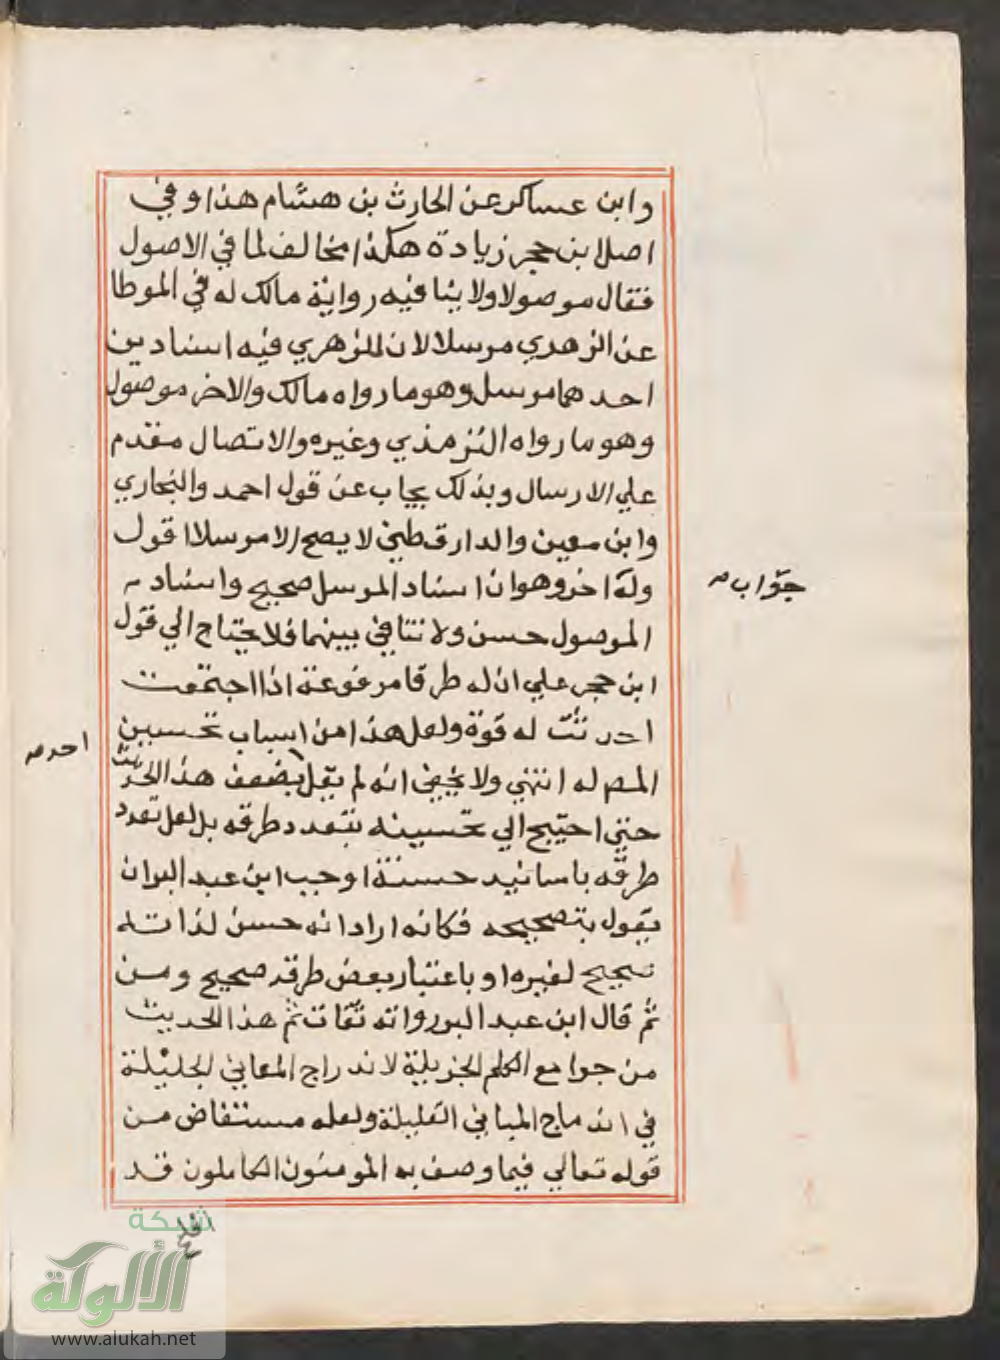 وابن عساكر عن الحارث بن هشام هذا وفي
اصل ابن حجر زيادة هكذا مخالف لما في الاصول
فقال موصولا ولا ينافيه رواية مالك له في الموطا
عن الزهري مرسلا لان للزهري فيه اسنادين
احدهما مرسل وهو ما رواه مالك والاخر موصول
وهو ما رواه الترمذي وغيره والاتصال مقدم
علي الارسال وبذلك يجاب عن قول احمد والبخاري
وابن معين والدارقطني لا يصح الا مرسلا اقول
وله اخر وهو ان اسناد المرسل صحيح واسناد
جواب
الموصول حسن ولا تنافي بينهما فلا يحتاج الي قول
ابن حجر علي ان له طرقا مرفوعة اذا اجتمعت
احدثت له قوة ولعل هذا من اسباب تحسين
احد
المص له انتهي ولا يخفي انه لم يقل بضعف هذا الحديث
حتي احتيج الي تحسينه بتعدد طرقه بل لعل تعدد
طرقه باسانيد حسنة اوجب ابن عبد البر ان
يقول بتصحيحه فكانه اراد انه حسن لذاته
صحيح لغيره او باعتبار بعض طرقه صحيح ومن
ثم قال ابن عبد البر رواته ثقات ثم هذا الحديث
من جوامع الكلم الجزيلة لاندراج المعاني الجليلة
في اندماج المباني القليلة ولعله مستفاض من
قوله تعالي فيما وصف به المومنون الكاملون قد
شبكة
الألوكة
www.alukah.net